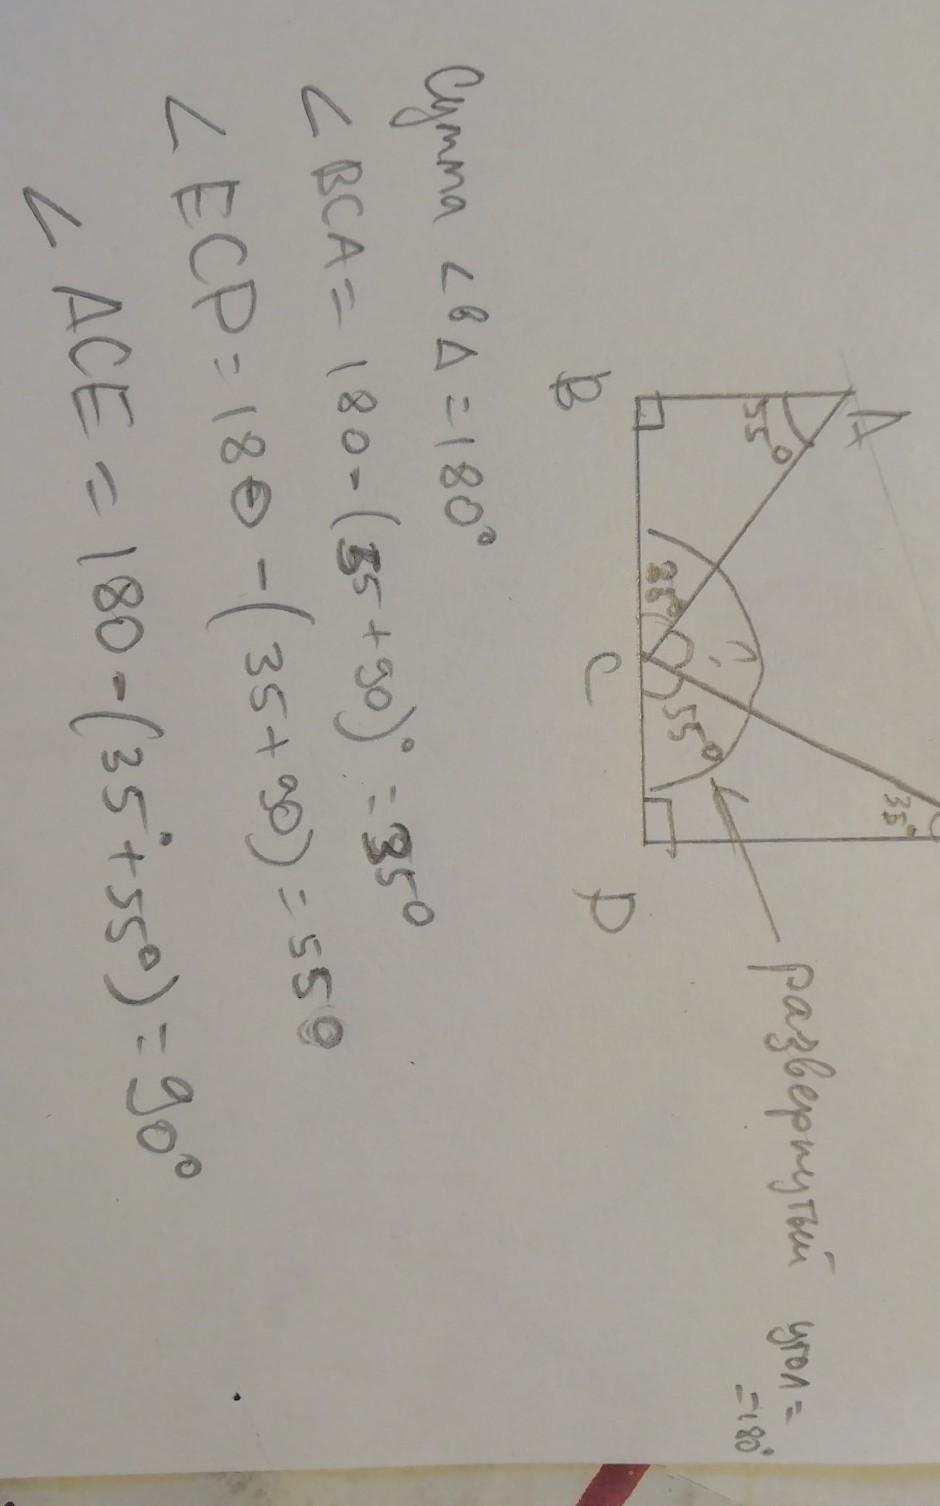 A
55°
B
35°
C
55°
35°
D
развернутый угол =
= 180°
Сумма ∠ в Δ = 180°
∠ BCA = 180 - (35 + 90)° = 35°
∠ ECD = 180 - (35 + 90) = 55°
∠ ACE = 180 - (35° + 55°) = 90°